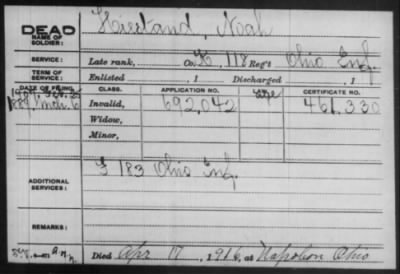 DEAD
NAME OF SOLDIER: Noah
SERVICE: Late rank, Co. K, 118 Reg't Ohio Inf.
TERM OF SERVICE: Enlisted , 1 Discharged , 1
DATE OF FILING. CLASS. APPLICATION NO. LAW. CERTIFICATE NO.
Invalid, 692,042 461,330
Widow,
Minor,
ADDITIONAL SERVICES: 183 Ohio Inf.
REMARKS:
Died Apr 17, 1916, at Napoleon Ohio